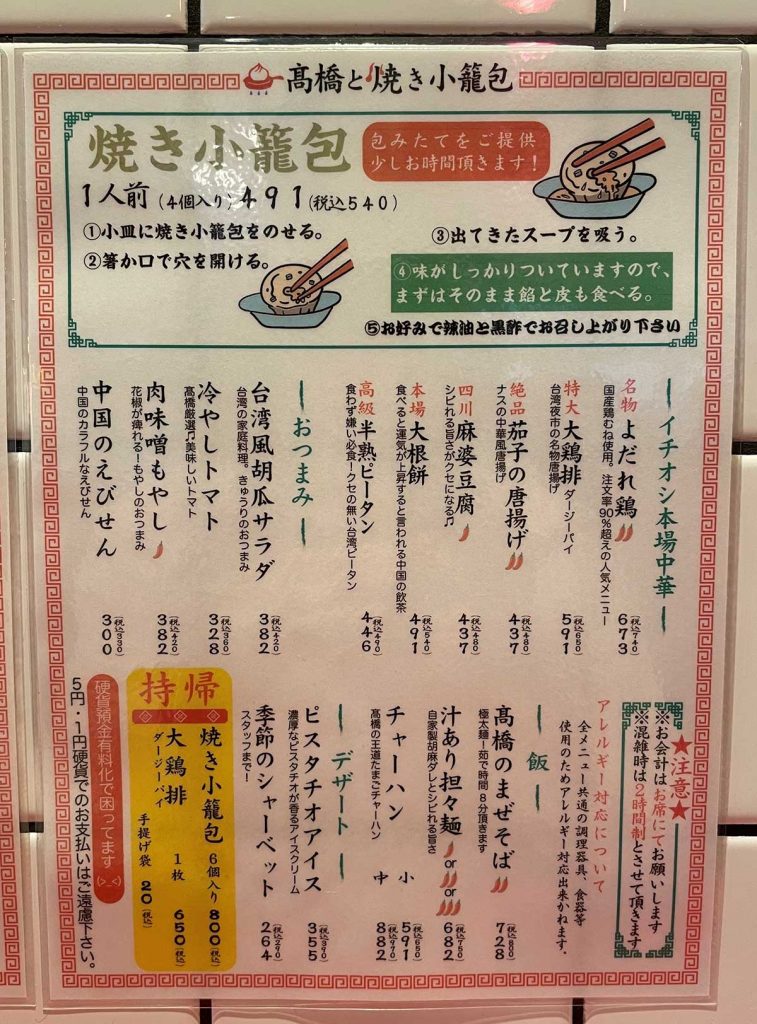 髙橋と焼き小籠包
焼き小籠包
包みたてをご提供
少しお時間頂きます！
1人前（4個入り）491（税込540）
①小皿に焼き小籠包をのせる。
②箸か口で穴を開ける。
③出てきたスープを吸う。
④味がしっかりついていますので、
まずはそのまま餡と皮も食べる。
⑤お好みで辣油と黒酢でお召し上がり下さい
イチオシ本場中華
名物 よだれ鶏
国産鶏むね使用。注文率90%超えの人気メニュー
（税込740）
673
特大 大鶏排 ダージーパイ
台湾夜市の名物唐揚げ
（税込650）
591
絶品 茄子の唐揚げ
ナスの中華風唐揚げ
（税込480）
437
四川 麻婆豆腐
シビれる旨さがクセになる♫
（税込480）
437
本場 大根餅
食べると運気が上昇すると言われる中国の飲茶
（税込540）
491
高級 半熟ピータン
食わず嫌い必食！クセの無い台湾ピータン
（税込490）
446
おつまみ
台湾風胡瓜サラダ
台湾の家庭料理。きゅうりのおつまみ
（税込420）
382
冷やしトマト
髙橋厳選♫美味しいトマト
（税込360）
328
肉味噌もやし
花椒が痺れる！もやしのおつまみ
（税込420）
382
中国のえびせん
中国のカラフルなえびせん
（税込330）
300
★注意★
※お会計はお席にてお願いします
※混雑時は2時間制とさせて頂きます
アレルギー対応について
全メニュー共通の調理器具、食器等
使用のためアレルギー対応出来かねます。
飯
髙橋のまぜそば
極太麺！茹で時間8分頂きます
（税込800）
728
汁あり担々麺
or
or
自家製胡麻ダレとシビれる旨さ
（税込750）
682
チャーハン
髙橋の王道たまごチャーハン
小
（税込650）
591
中
（税込970）
882
デザート
ピスタチオアイス
濃厚なピスタチオが香るアイスクリーム
（税込390）
355
季節のシャーベット
スタッフまで！
（税込290）
264
持帰
焼き小籠包 6個入り 800（税込）
大鶏排 1枚 650（税込）
ダージーパイ
手提げ袋 20（税込）
硬貨預金有料化で困ってます（>_<）
5円・1円硬貨でのお支払いはご遠慮下さい。